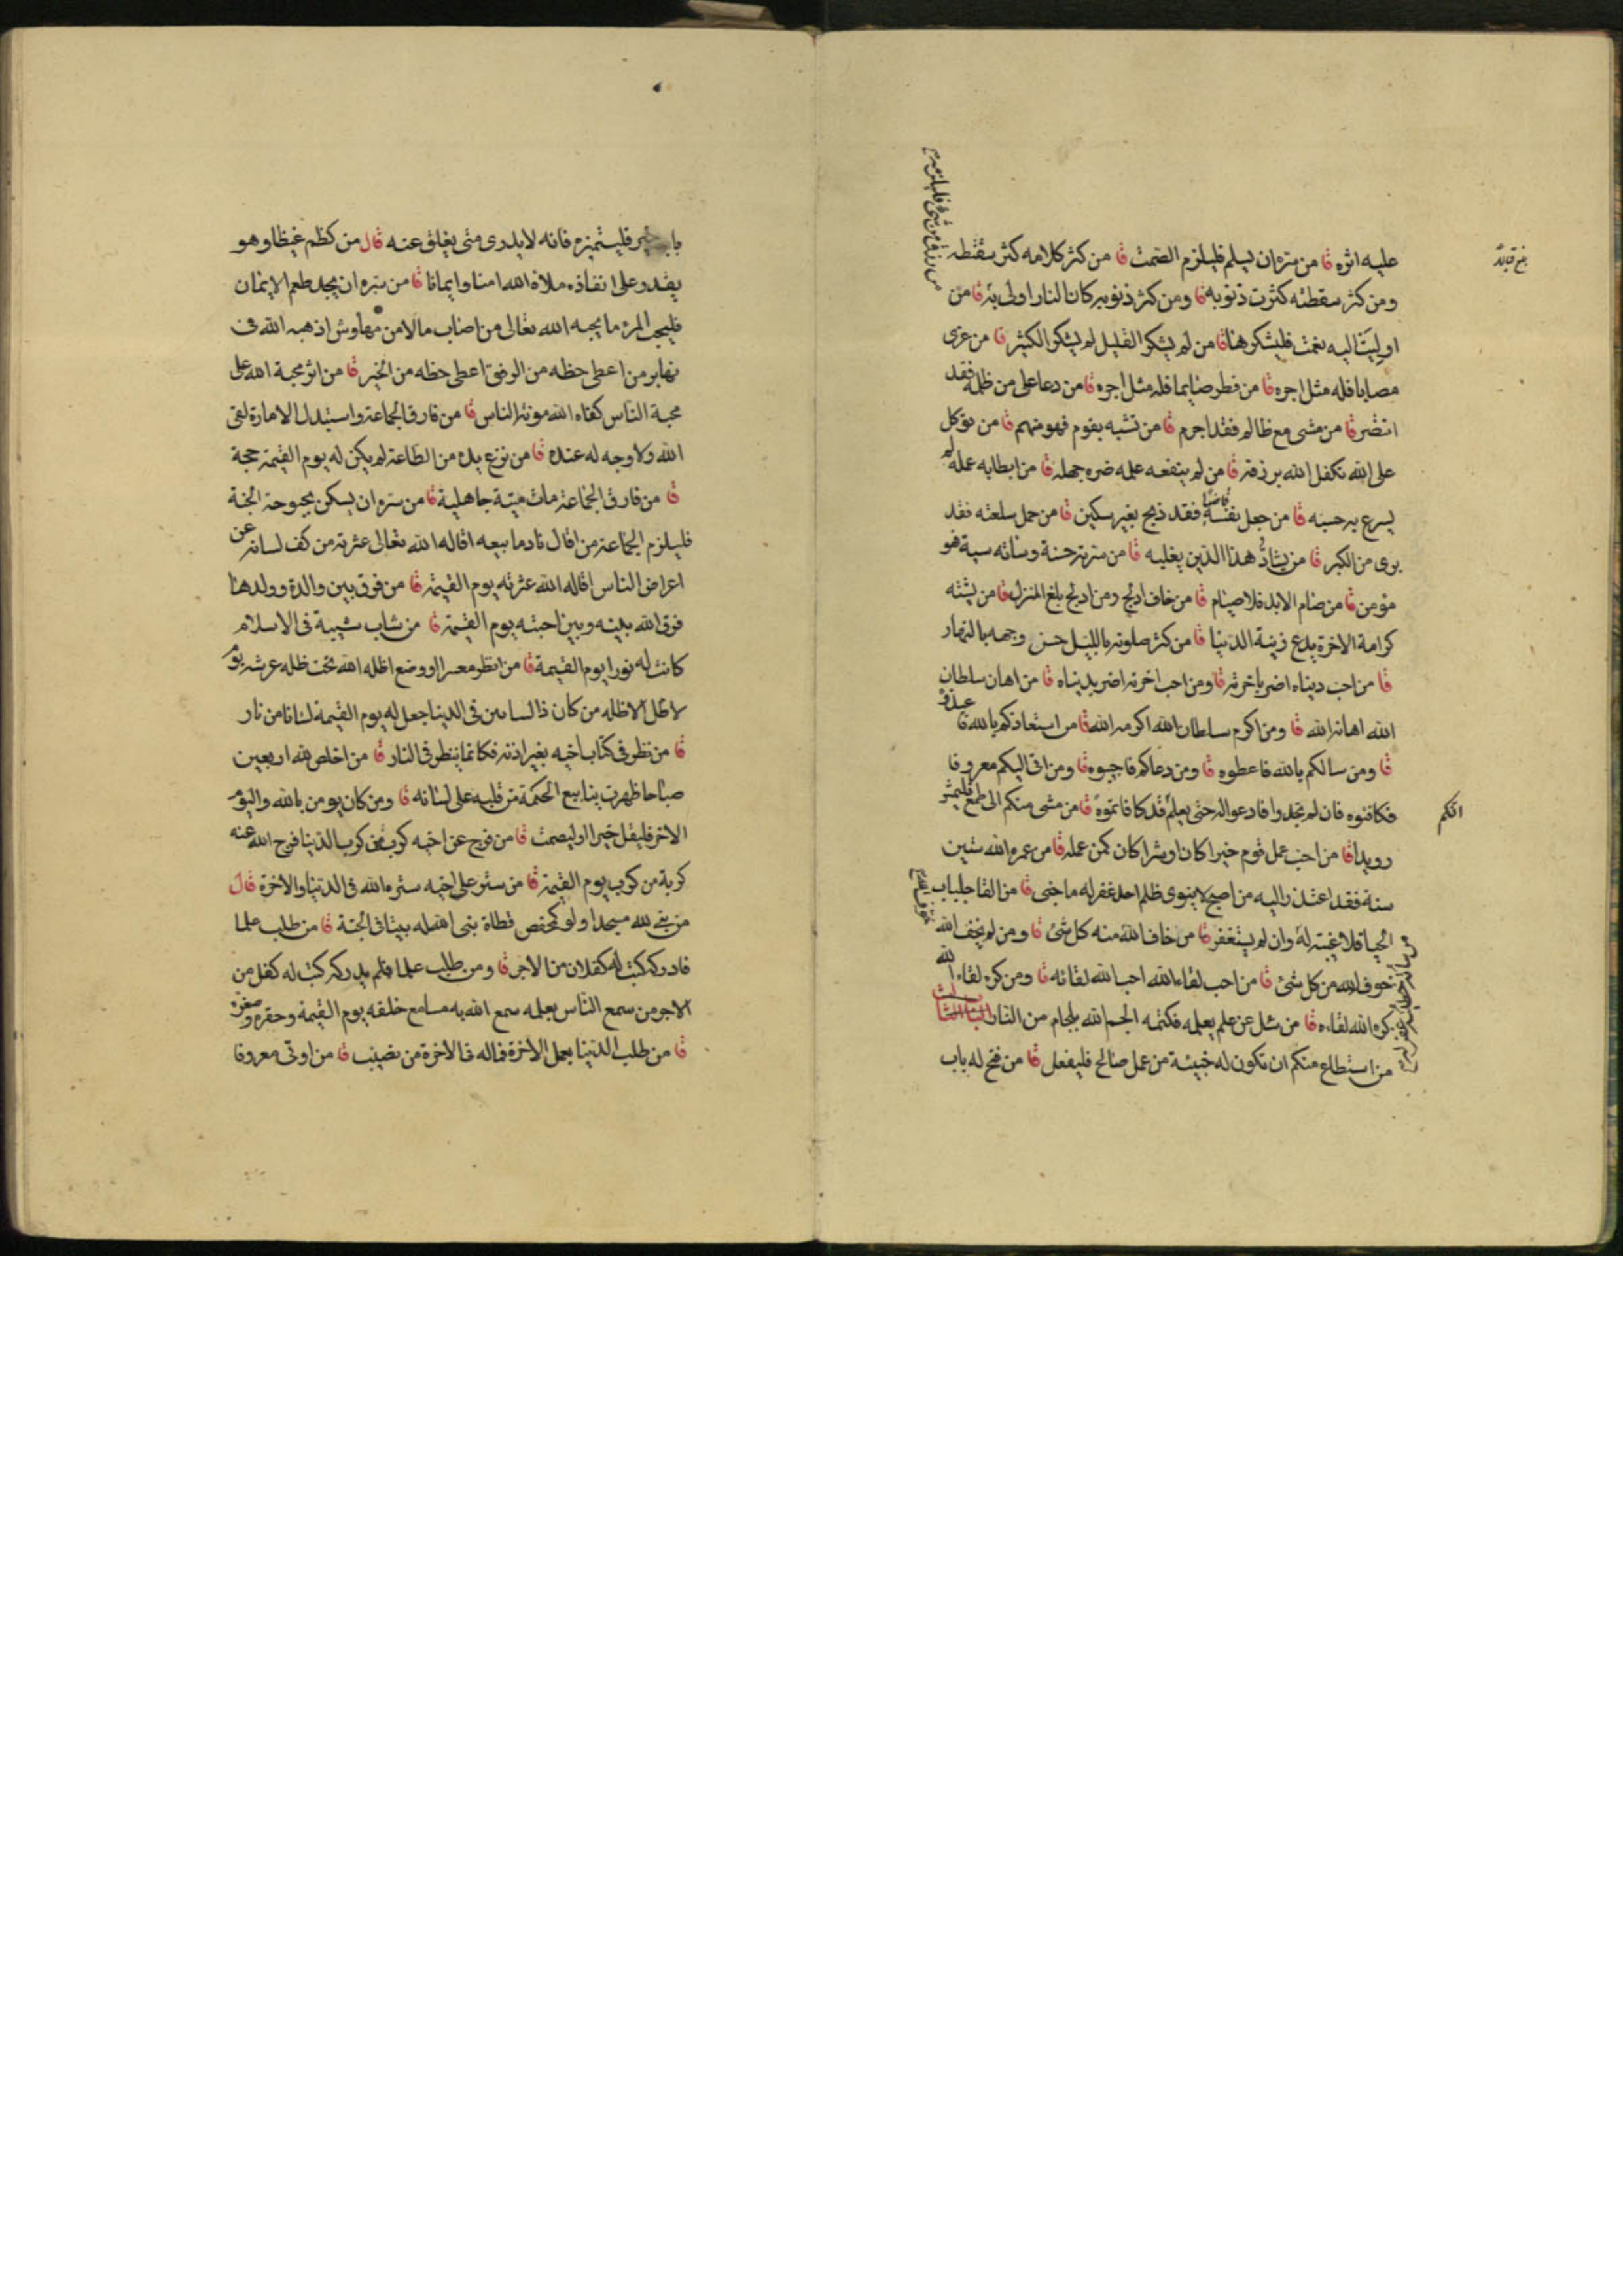 عليه اثره قا من سره ان يسلم فليلزم الصمت قا من كثر كلامه كثر سقطه
ومن كثر سقطه كثرت ذنوبه قا ومن كثر ذنوبه كان النار اولى به قا من
اوليت اليه نعمت فليشكرها قا من لم يشكر القليل لم يشكر الكثير قا من عزى
مصابا فله مثل اجره قا من فطر صايما فله مثل اجره قا من دعا على من ظلمه فقد
انتصر قا من مشى مع ظالم فقد اجرم قا من تشبه بقوم فهو منهم قا من توكل
على الله تكفل الله برزقه قا من لم ينفعه علمه ضره جهله قا من ابطا به عمله لم
يسرع به حسبه قا من جعل نفسه قاضيا فقد ذبح بغير سكين قا من حمل سلعته فقد
برى من الكبر قا من يشاد هذا الدين يغلبه قا من سرته حسنة وساته سية هو
مؤمن قا من صام الابد فلا صيام قا من خاف ادلج ومن ادلج بلغ المنزل قا من يشته
كرامة الاخرة يدع زينة الدنيا قا من كثر صلوته بالليل حسن وجهه بالنهار
قا من احب دنياه اضر باخرته قا ومن احب اخرته اضر بدنياه قا من اهان سلطان
الله اهانه الله قا ومن اكرم سلطان الله اكرمه الله قا من استعاذكم بالله فا عيذوه
قا ومن سالكم بالله فاعطوه قا ومن دعاكم فاجيبوه قا ومن اتى اليكم معروفا
فكافئوه فان لم تجدوا فادعوا له حتى يعلم قد كافاتموه قا من مشى منكم الى طمع فليمش
رويدا قا من احب عمل قوم خيرا كان او شرا كان كمن عمله قا من عمره الله ستين
سنة فقد اعتذر اليه من اصبح لا ينوى ظلم احد غفر له ما جنى قا من القا جلباب
الحيا فلا غيبة له وان لم يستغفر قا من خاف الله خوف الله منه كل شئ قا ومن لم يخف الله
خوف الله من كل شئ قا من احب لقاء الله احب الله لقائه قا ومن كره لقاء الله
كره الله لقاءه قا من سئل عن علم يعلمه فكتمه الجم الله بلجام من النار الباب الثالث
من استطاع منكم ان تكون له خبيئة من عمل صالح فليفعل قا من فتح له باب
من رزق من شئ فليلزمه
انكم
باب خير فلينتهزه فانه لا يدرى متى يغلق عنه قال من كظم غيظا وهو
يقدر على انفاذه ملاه الله امنا وايمانا قا من سره ان يجد طعم الايمان
فليحب المرء ما يحبه الله تعالى من اصاب مالا من مهاوش اذهبه الله فى
نهابر من اعطى حظه من الرفق اعطى حظه من الخير قا من اثر محبة الله على
محبة الناس كفاه الله مونة الناس قا من فارق الجماعة واستبدل الامارة لقى
الله ولا وجه له عنده قا من نزع يده من الطاعة لم يكن له يوم القيمة حجة
قا من فارق الجماعة مات ميتة جاهلية قا من سره ان يسكن بحبوحة الجنة
فليلزم الجماعة من اقال نادما بيعه اقاله الله تعالى عثرته من كف لسانه عن
اعراض الناس اقاله الله عثرته يوم القيمة قا من فرق بين والدة وولدها
فرق الله بينه وبين احبته يوم القيمة قا من شاب شيبة فى الاسلام
كانت له نورا يوم القيمة قا من انظر معسرا او وضع اظله الله تحت ظله عرشه يوم
لا ظل الا ظله من كان ذا لسانين فى الدنيا جعل له يوم القيمة لسانا من نار
قا من نظر فى كتاب اخيه بغير اذنه فكانما ينظر فى النار قا من اخلص لله اربعين
صباحا ظهرت ينابيع الحكمة من قلبه على لسانه قا ومن كان يومن بالله واليوم
الاخر فليقل خيرا او ليصمت قا من فرج عن اخيه كربة من كرب الدنيا فرج الله عنه
كربة من كرب يوم القيمة قا من ستر على اخيه ستره الله فى الدنيا والاخرة قال
من بنى لله مسجدا ولو كمفحص قطاة بنى الله له بيتا فى الجنة قا من طلب علما
فادركه كتب له كفلان من الاجر قا ومن طلب علما فلم يدركه كتب له كفل من
الاجر من سمع الناس بعلمه سمع الله به مسامع خلقه يوم القيمة وحقره وصغره
قا من طلب الدنيا بعمل الاخرة فما له فى الاخرة من نصيب قا من اوتى معروفا